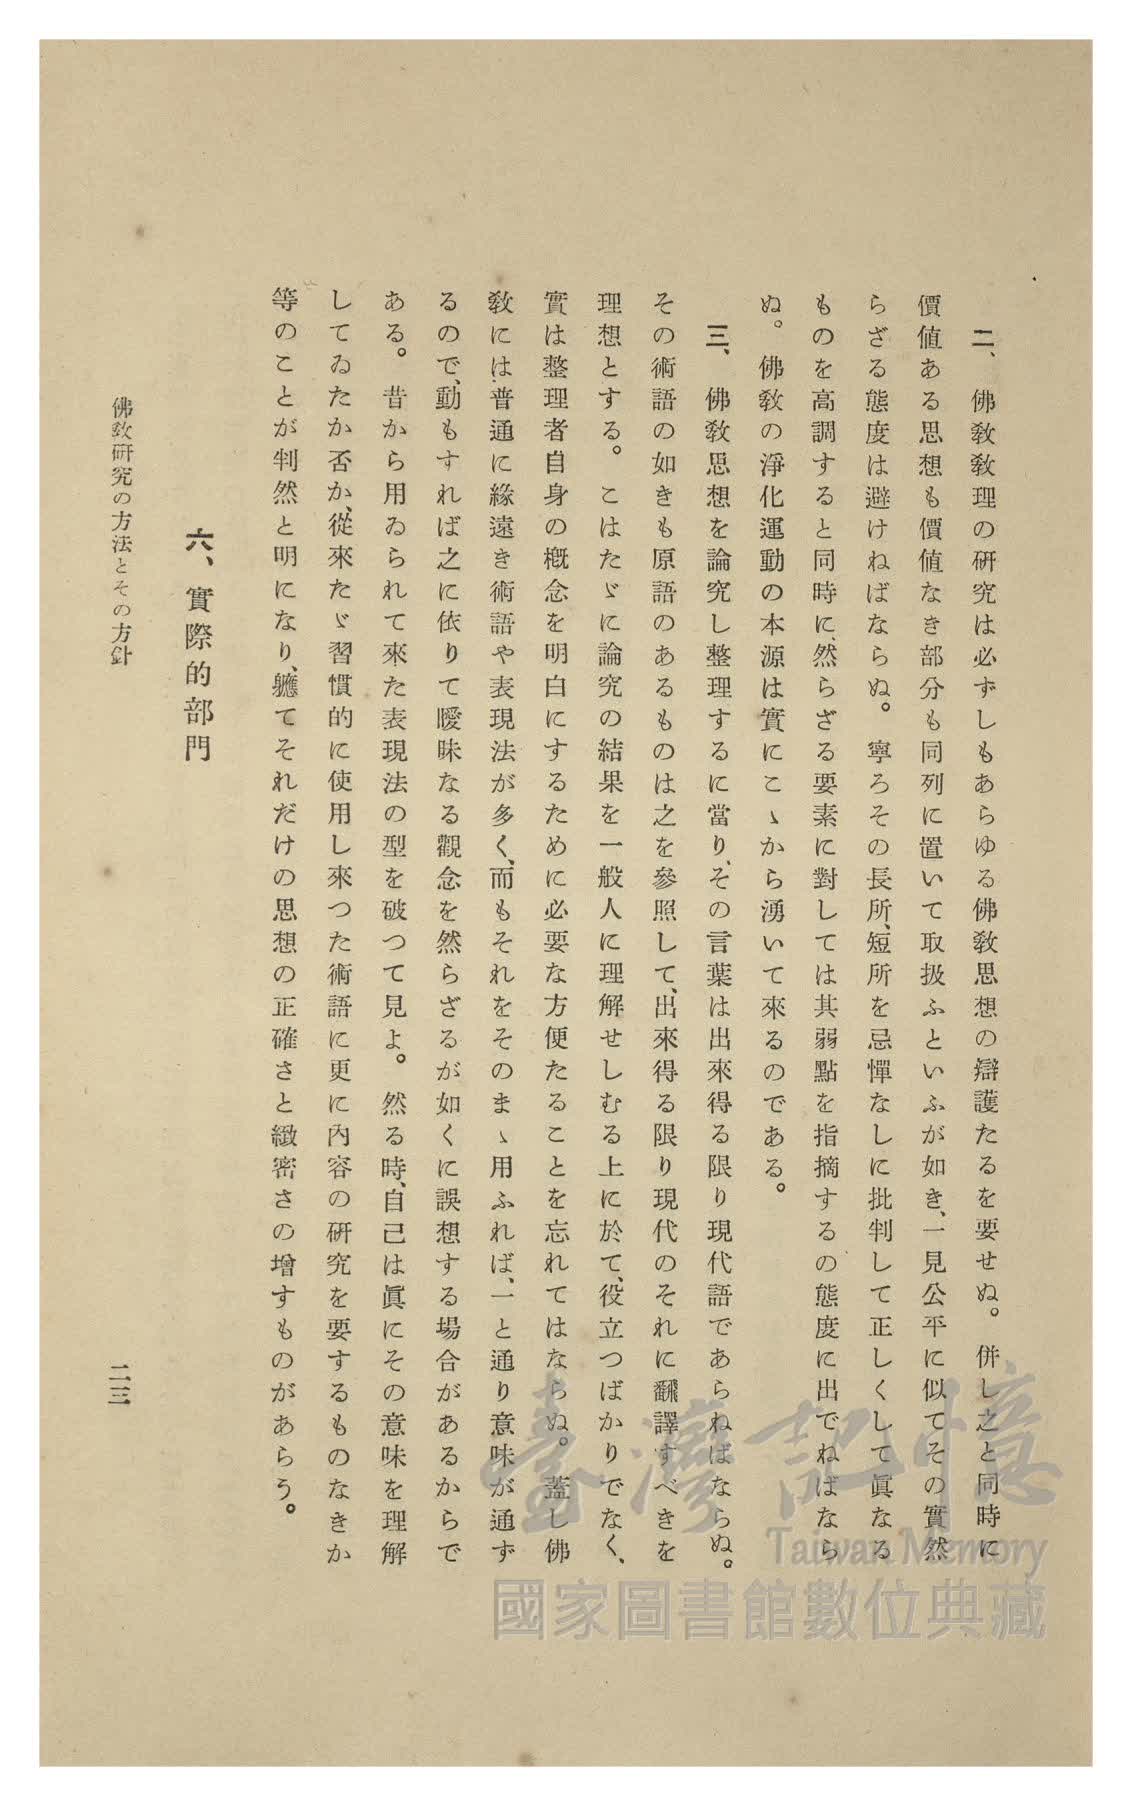 二、佛敎敎理の硏究は必ずしもあらゆる佛敎思想の辯護たるを要せぬ。併し之と同時に
價値ある思想も價値なき部分も同列に置いて取扱ふといふが如き、一見公平に似てその實然
らざる態度は避けねばならぬ。寧ろその長所、短所を忌憚なしに批判して正しくして眞なる
ものを高調すると同時に、然らざる要素に對しては其弱點を指摘するの態度に出でねばなら
ぬ。佛敎の淨化運動の本源は實にこゝから湧いて來るのである。
三、佛敎思想を論究し整理するに當り、その言葉は出來得る限り現代語であらねばならぬ。
その術語の如きも原語のあるものは之を參照して、出來得る限り現代のそれに飜譯すべきを
理想とする。こはたゞに論究の結果を一般人に理解せしむる上に於て、役立つばかりでなく、
實は整理者自身の槪念を明白にするために必要な方便たることを忘れてはならぬ。蓋し佛
敎には普通に緣遠き術語や表現法が多く、而もそれをそのまゝ用ふれば、一と通り意味が通ず
るので、動もすれば之に依りて曖昧なる觀念を然らざるが如くに誤想する場合があるからで
ある。昔から用ゐられて來た表現法の型を破つて見よ。然る時、自己は眞にその意味を理解
してゐたか否か、從來たゞ習慣的に使用し來つた術語に更に內容の硏究を要するものなきか
等のことが判然と明になり、軈てそれだけの思想の正確さと緻密さの增すものがあらう。
六、實際的部門
佛敎硏究の方法とその方針
二三
臺灣記憶
Taiwan Memory
國家圖書館數位典藏